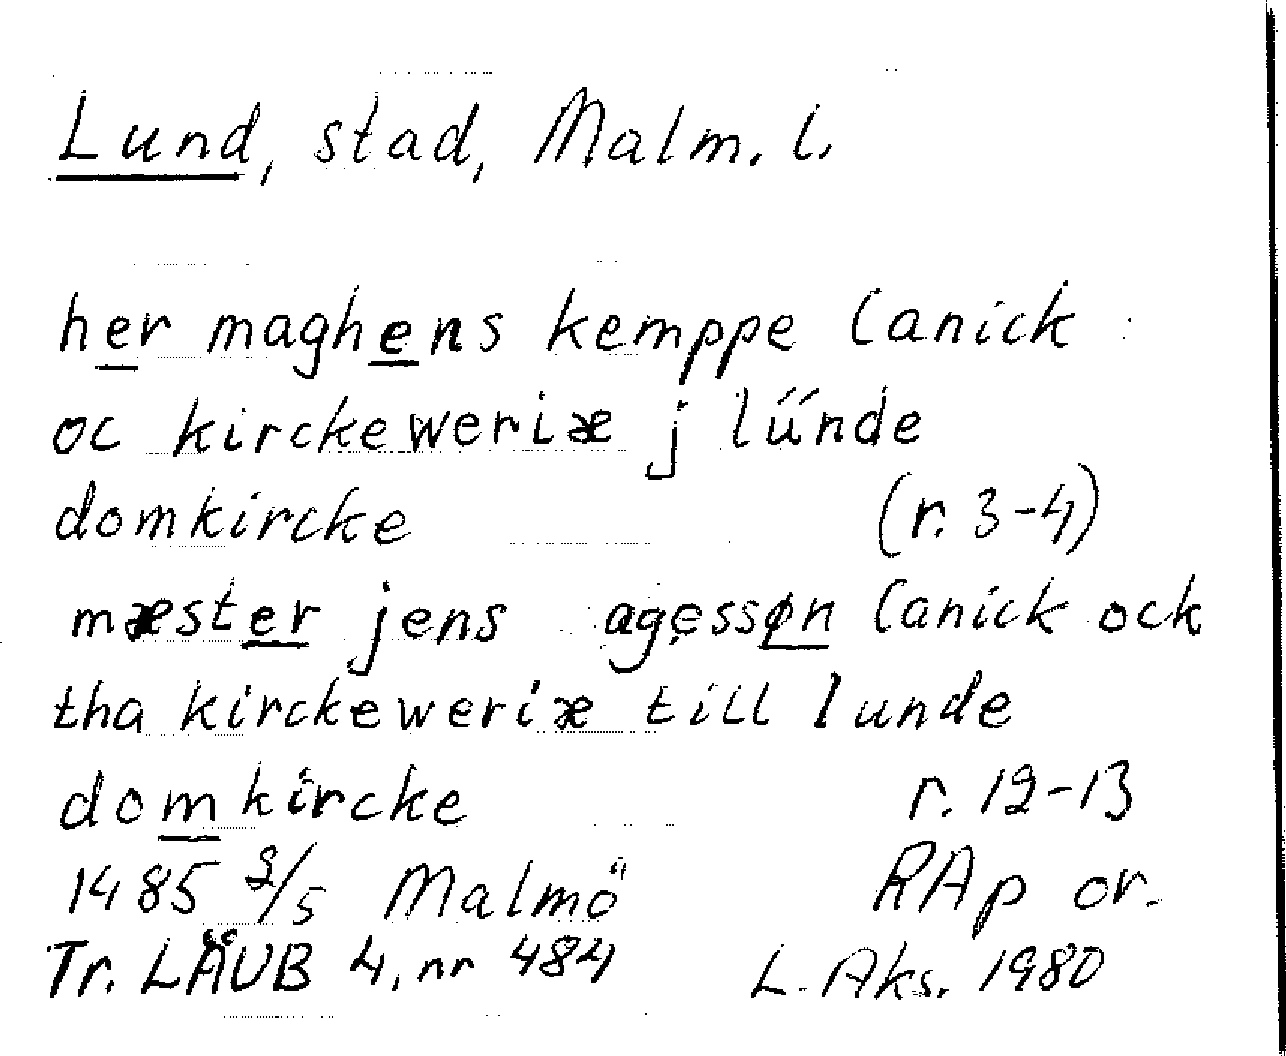 Lund, stad, Malm. l.
her maghens kemppe Canick
oc kirckeweriæ j lúúnde
domkircke (r. 3-4)
mæster jens agessøn Canick ock
tha kirckeweriæ till lunde
domkircke r. 12-13
1485 2/5 Malmö RAp or.
Tr. LÄUB 4, nr 484 L. Aks. 1980